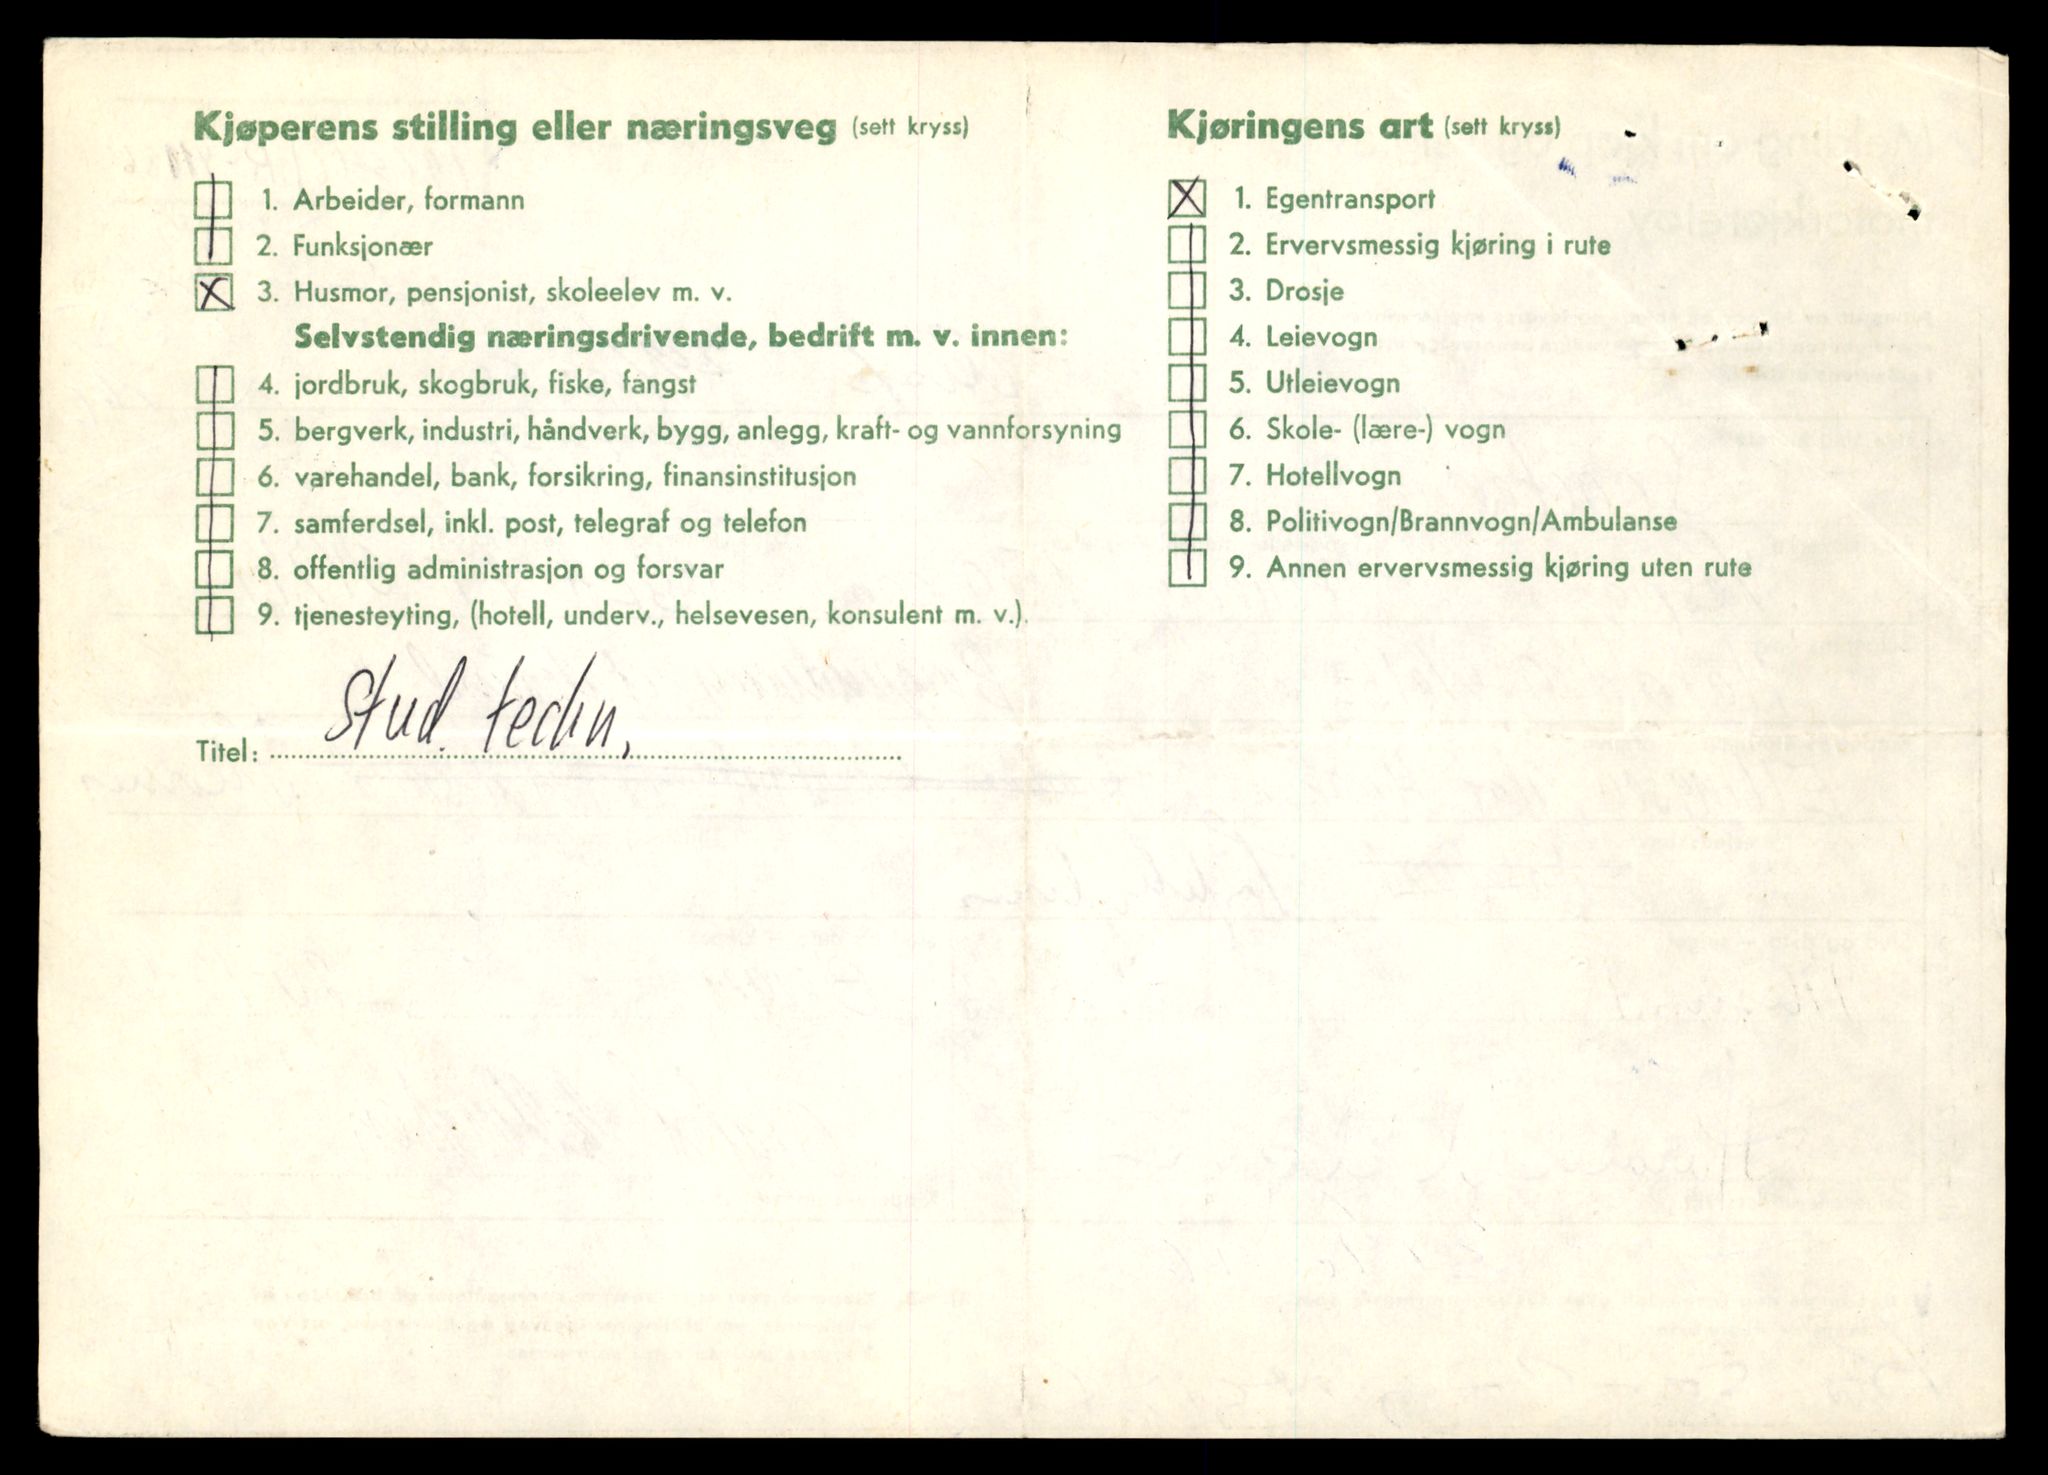 Kjøperens stilling eller næringsveg (sett kryss)
1. Arbeider, formann
2. Funksjonær
3. Husmor, pensjonist, skoleelev m. v.
Selvstendig næringsdrivende, bedrift m. v. innen:
4. jordbruk, skogbruk, fiske, fangst
5. bergverk, industri, håndverk, bygg, anlegg, kraft- og vannforsyning
6. varehandel, bank, forsikring, finansinstitusjon
7. samferdsel, inkl. post, telegraf og telefon
8. offentlig administrasjon og forsvar
9. tjenesteyting, (hotell, underv., helsevesen, konsulent m. v.).
Titel: stud. techn.
Kjøringens art (sett kryss)
1. Egentransport
2. Ervervsmessig kjøring i rute
3. Drosje
4. Leievogn
5. Utleievogn
6. Skole- (lære-) vogn
7. Hotellvogn
8. Politivogn/Brannvogn/Ambulanse
9. Annen ervervsmessig kjøring uten rute